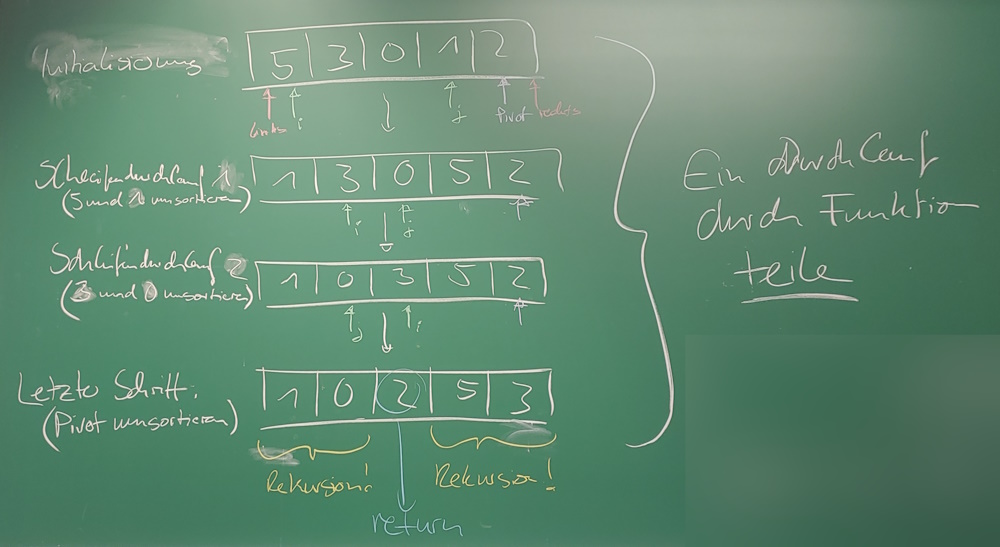 Initialisierung 5 3 0 1 2
links i j Pivot rechts
Schleifendurchlauf 1 1 3 0 5 2
(5 und 1 umsortieren)
i j
Schleifendurchlauf 2 1 0 3 5 2
(3 und 0 umsortieren)
j i
Letzter Schritt: 1 0 2 5 3
(Pivot umsortieren)
Rekursion! Rekursion!
return
Ein Durchlauf
durch Funktion
teile